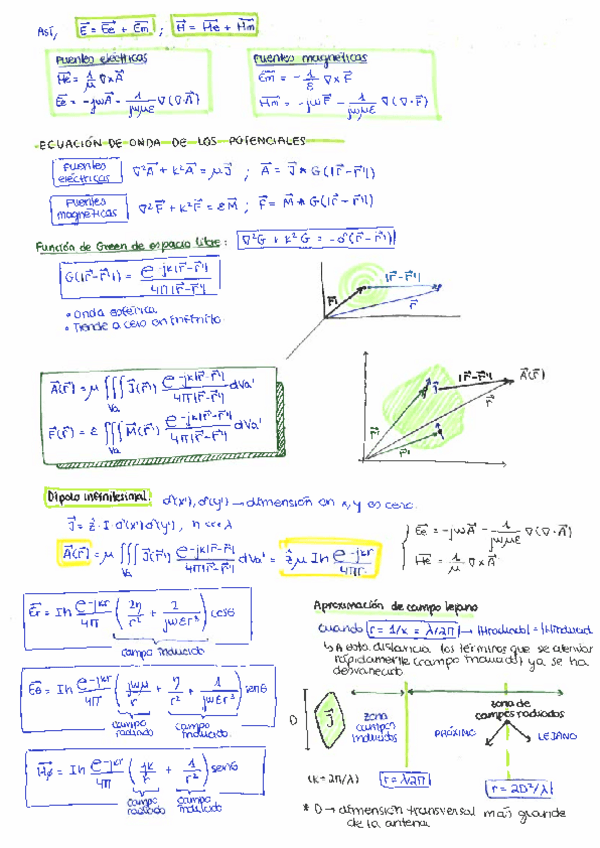 Así, E⃗ = E⃗e + E⃗m ; H⃗ = H⃗e + H⃗m
Fuentes eléctricas
H⃗e = 1/μ ∇×A⃗
E⃗e = -jωA⃗ - 1/jωμε ∇(∇·A⃗)
Fuentes magnéticas
E⃗m = - 1/ε ∇×F⃗
H⃗m = -jωF⃗ - 1/jωμε ∇(∇·F⃗)
ECUACIÓN DE ONDA DE LOS POTENCIALES
Fuentes eléctricas
∇²A⃗ + k²A⃗ = μJ⃗ ; A⃗ = J⃗ * G(|r⃗-r⃗'|)
Fuentes magnéticas
∇²F⃗ + k²F⃗ = εM⃗ ; F⃗ = M⃗ * G(|r⃗-r⃗'|)
Función de Green de espacio libre: ∇²G + k²G = -δ(r⃗-r⃗')
G(|r⃗-r⃗'|) = e^(-jk|r⃗-r⃗'|) / 4π|r⃗-r⃗'|
• Onda esférica
• Tiende a cero en infinito
|r⃗-r⃗'|
r⃗'
r⃗
A⃗(r⃗) = μ ∭Va J⃗(r⃗') e^(-jk|r⃗-r⃗'|) / 4π|r⃗-r⃗'| dVa'
F⃗(r⃗) = ε ∭Va M⃗(r⃗') e^(-jk|r⃗-r⃗'|) / 4π|r⃗-r⃗'| dVa'
|r⃗-r⃗'|
A⃗(r⃗)
r⃗
r⃗'
r⃗'
Dipolo infinitesimal: δ(x'), δ(y') → dimensión en x, y es cero.
J⃗ = ẑ · I δ(x')δ(y') , h <<< λ
A⃗(r⃗) = μ ∭Va J⃗(r⃗') e^(-jk|r⃗-r⃗'|) / 4π|r⃗-r⃗'| dVa' = ẑ μ I h e^(-jkr) / 4πr
E⃗e = -jωA⃗ - 1/jωμε ∇(∇·A⃗)
H⃗e = 1/μ ∇×A⃗
E⃗r = Ih e^(-jkr)/4π (2η/r² + 2/jωεr³) cosθ
campo inducido
E⃗θ = Ih e^(-jkr)/4π (jωμ/r + η/r² + 1/jωεr³) senθ
campo radiado
campo inducido
H⃗φ = Ih e^(-jkr)/4π (jk/r + 1/r²) senθ
campo radiado
campo inducido
Aproximación de campo lejano
Cuando r = 1/k = λ/2π → |Hradiado| = |Hinducido|
↳ A esta distancia los términos que se atenúan
rápidamente (campo inducido) ya se ha
desvanecido
D
J⃗
zona campos inducidos
zona de campos radiados
PRÓXIMO
LEJANO
(k = 2π/λ)
r = λ/2π
r = 2D²/λ
* D → dimensión transversal más grande
de la antena